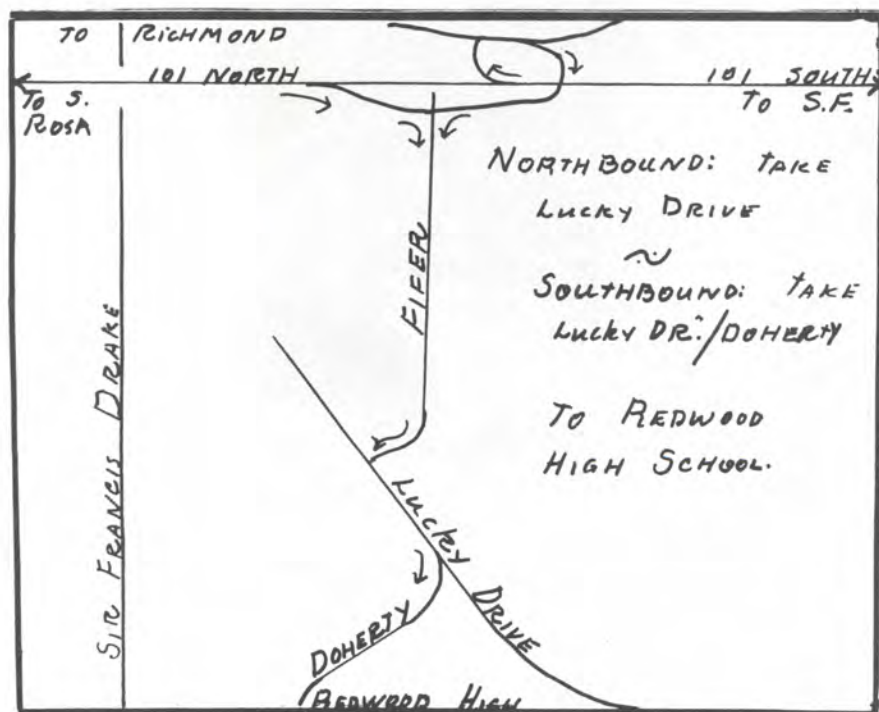 TO RICHMOND
101 NORTH
101 SOUTH
TO S.
ROSA
TO S.F.
NORTHBOUND: TAKE
LUCKY DRIVE
SOUTHBOUND: TAKE
LUCKY DR./DOHERTY
TO REDWOOD
HIGH SCHOOL.
FIFER
SIR FRANCIS DRAKE
LUCKY DRIVE
DOHERTY
REDWOOD HIGH